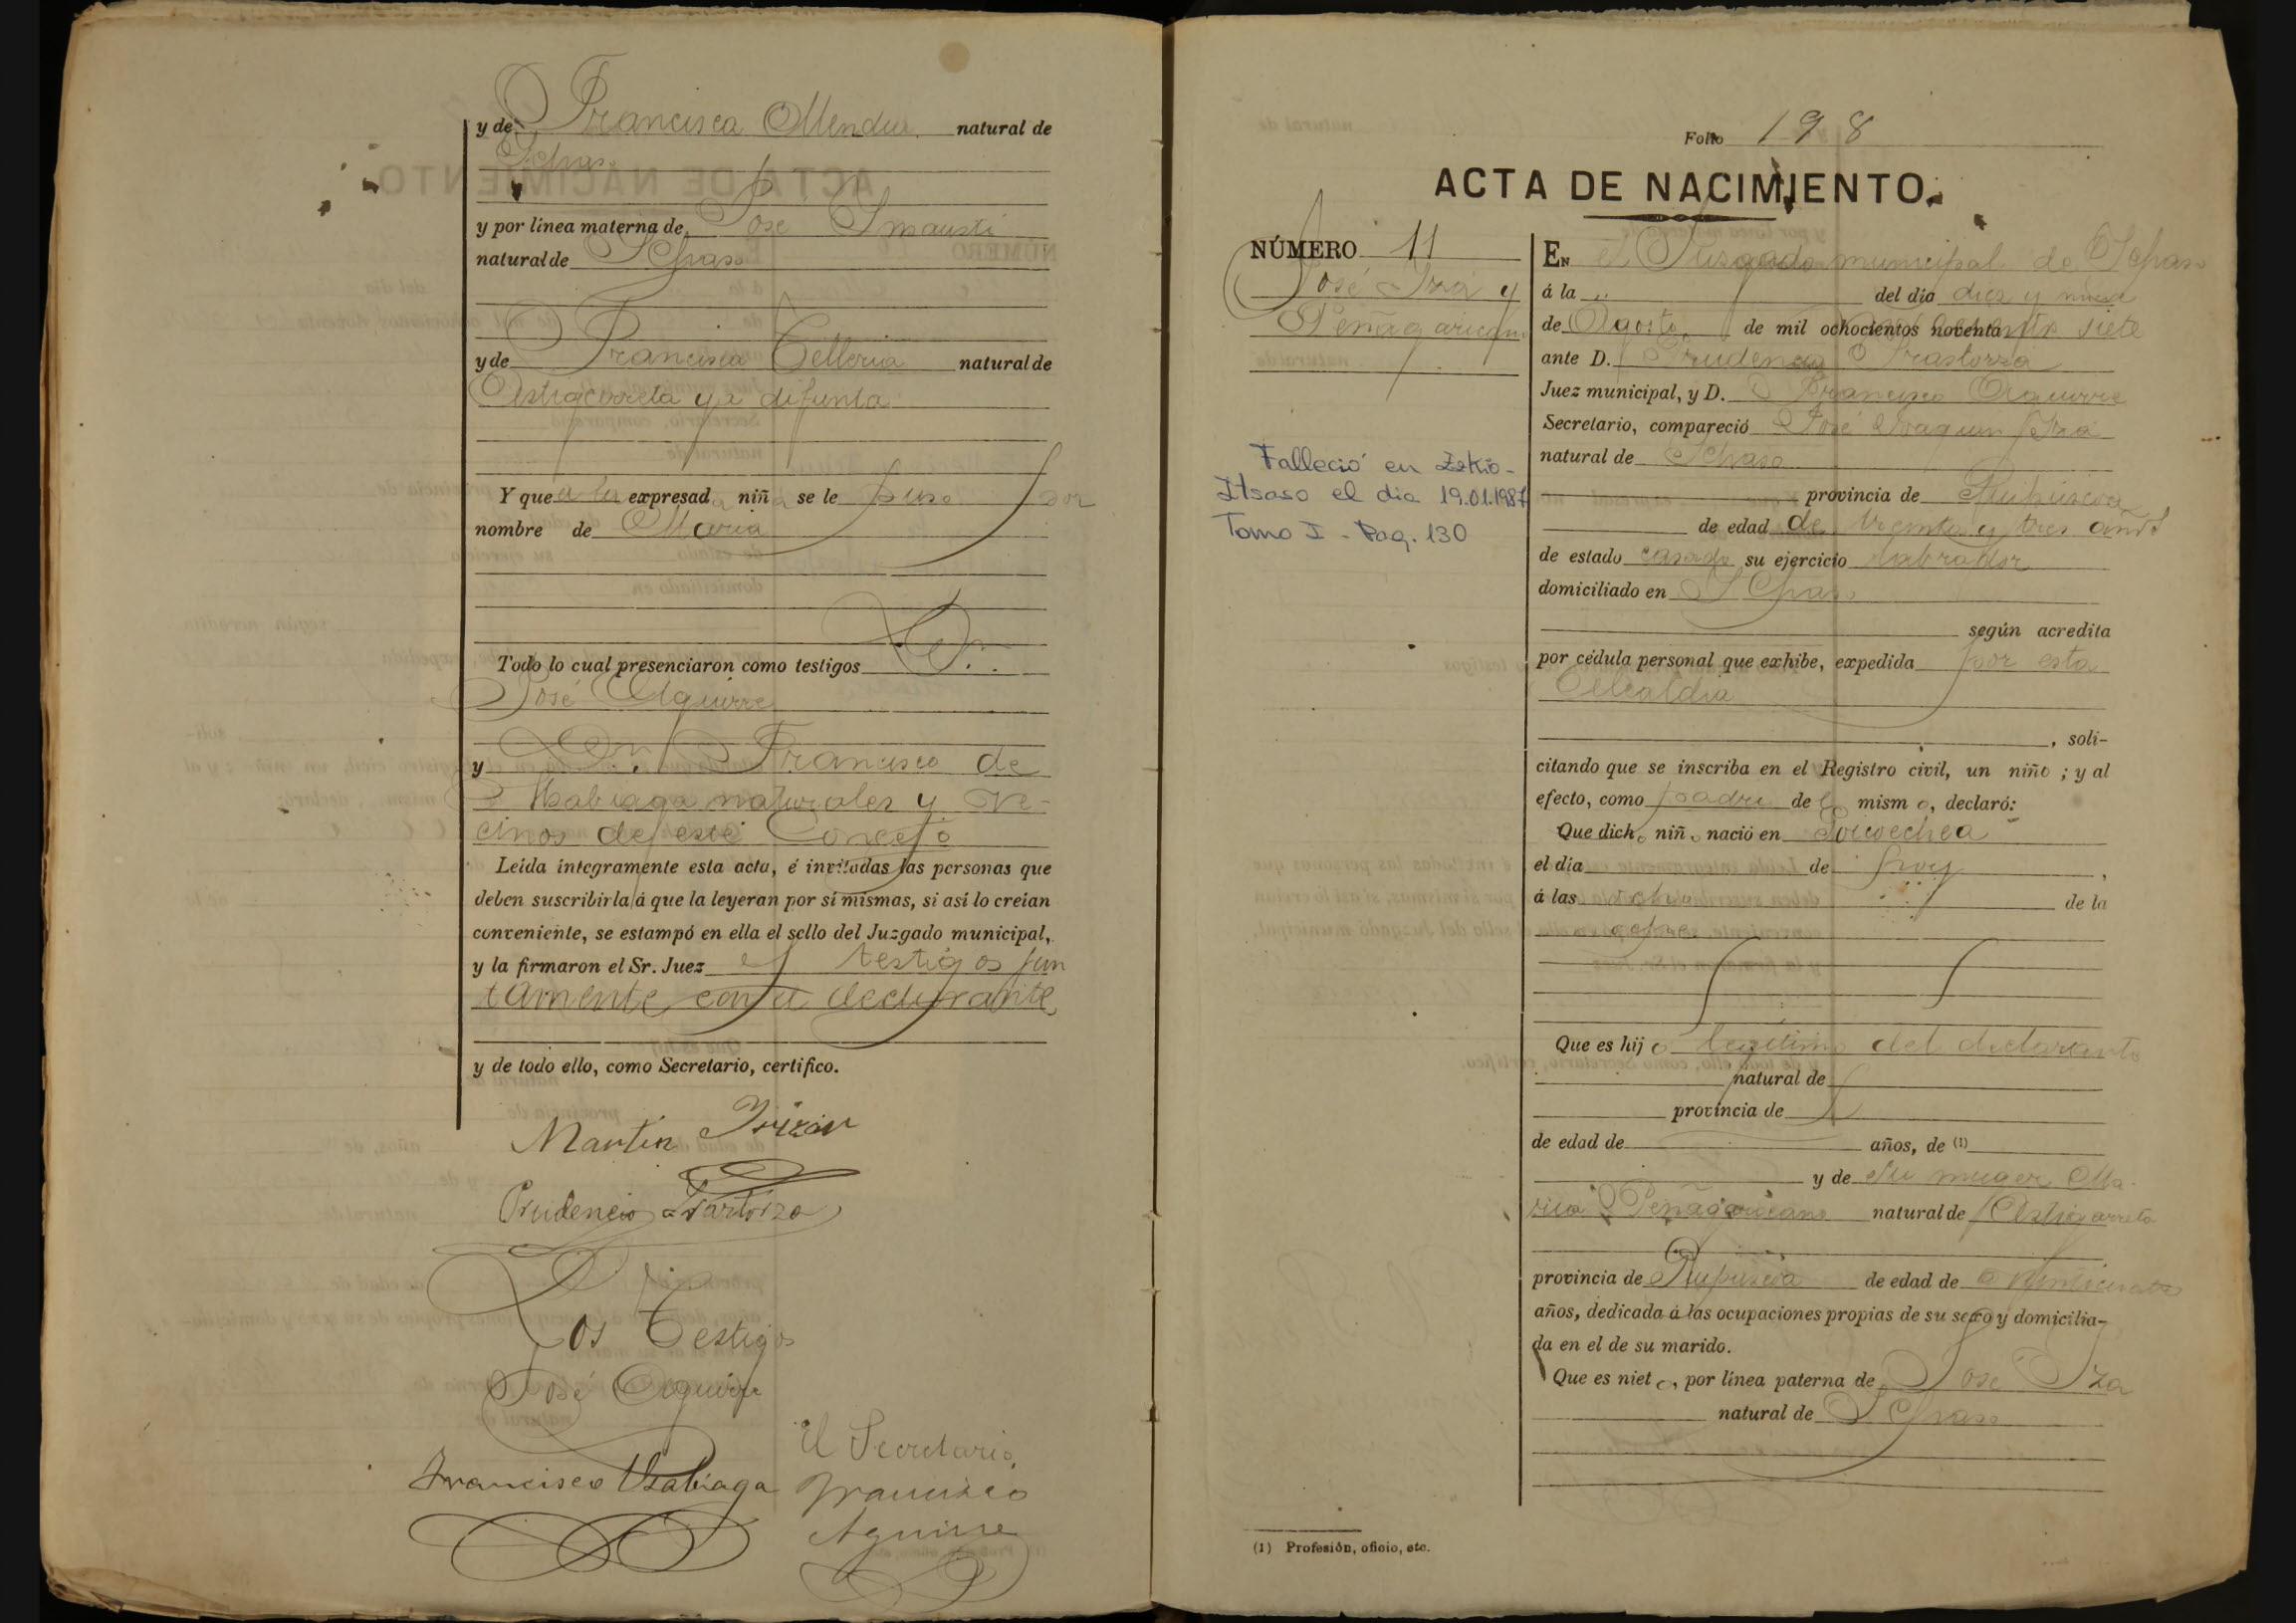 y de Francisca Mendia natural de
Ichaso
y por línea materna de José Imausti
natural de Ichaso
y de Francisca Telleria natural de
Astigarreta ya difunta
Y que a la expresada niña se le puso por
nombre de Maria
Todo lo cual presenciaron como testigos Dn.
José Aguirre
y Dn. Francisco de
Usabiaga naturales y ve-
cinos de este Concejo
Leída íntegramente esta acta, é invitadas las personas que
deben suscribirla á que la leyeran por sí mismas, si así lo creían
conveniente, se estampó en ella el sello del Juzgado municipal,
y la firmaron el Sr. Juez testigos jun
tamente con el declarante
y de todo ello, como Secretario, certifico.
Martin Irizar
Prudencio Irastorza
Los Testigos
José Aguirre
El Secretario
Francisco Usabiaga
Francisco
Aguirre
Folio 198
ACTA DE NACIMIENTO.
NÚMERO 11
José Iza y
Peñagaricano
Falleció en Ezkio-
Itsaso el dia 19.01.1987
Tomo I - Pag. 130
En el Juzgado municipal de Ichaso
á la " del día diez y nueve
de Agosto de mil ochocientos noventa y siete
ante D. Prudencio Irastorza
Juez municipal, y D. Francisco Aguirre
Secretario, compareció José Joaquin Iza
natural de Ichaso
provincia de Guipúzcoa
de edad de treinta y tres años
de estado casado su ejercicio labrador
domiciliado en Ichaso
según acredita
por cédula personal que exhibe, expedida por esta
Alcaldia
, soli-
citando que se inscriba en el Registro civil, un niño ; y al
efecto, como padre de lo mismo, declaró:
Que dicho niño nació en
el día de hoy,
á las ocho de la
Que es hijo legitimo del declarante
natural de
provincia de
de edad de años, de (1)
y de su muger Ma-
ria Peñagaricano natural de Astigarreta
provincia de Guipuzcoa de edad de veinticuatro
años, dedicada á las ocupaciones propias de su sexo y domicilia-
da en el de su marido.
Que es nieto, por línea paterna de José Iza
natural de Ichaso
(1) Profesión, oficio, etc.